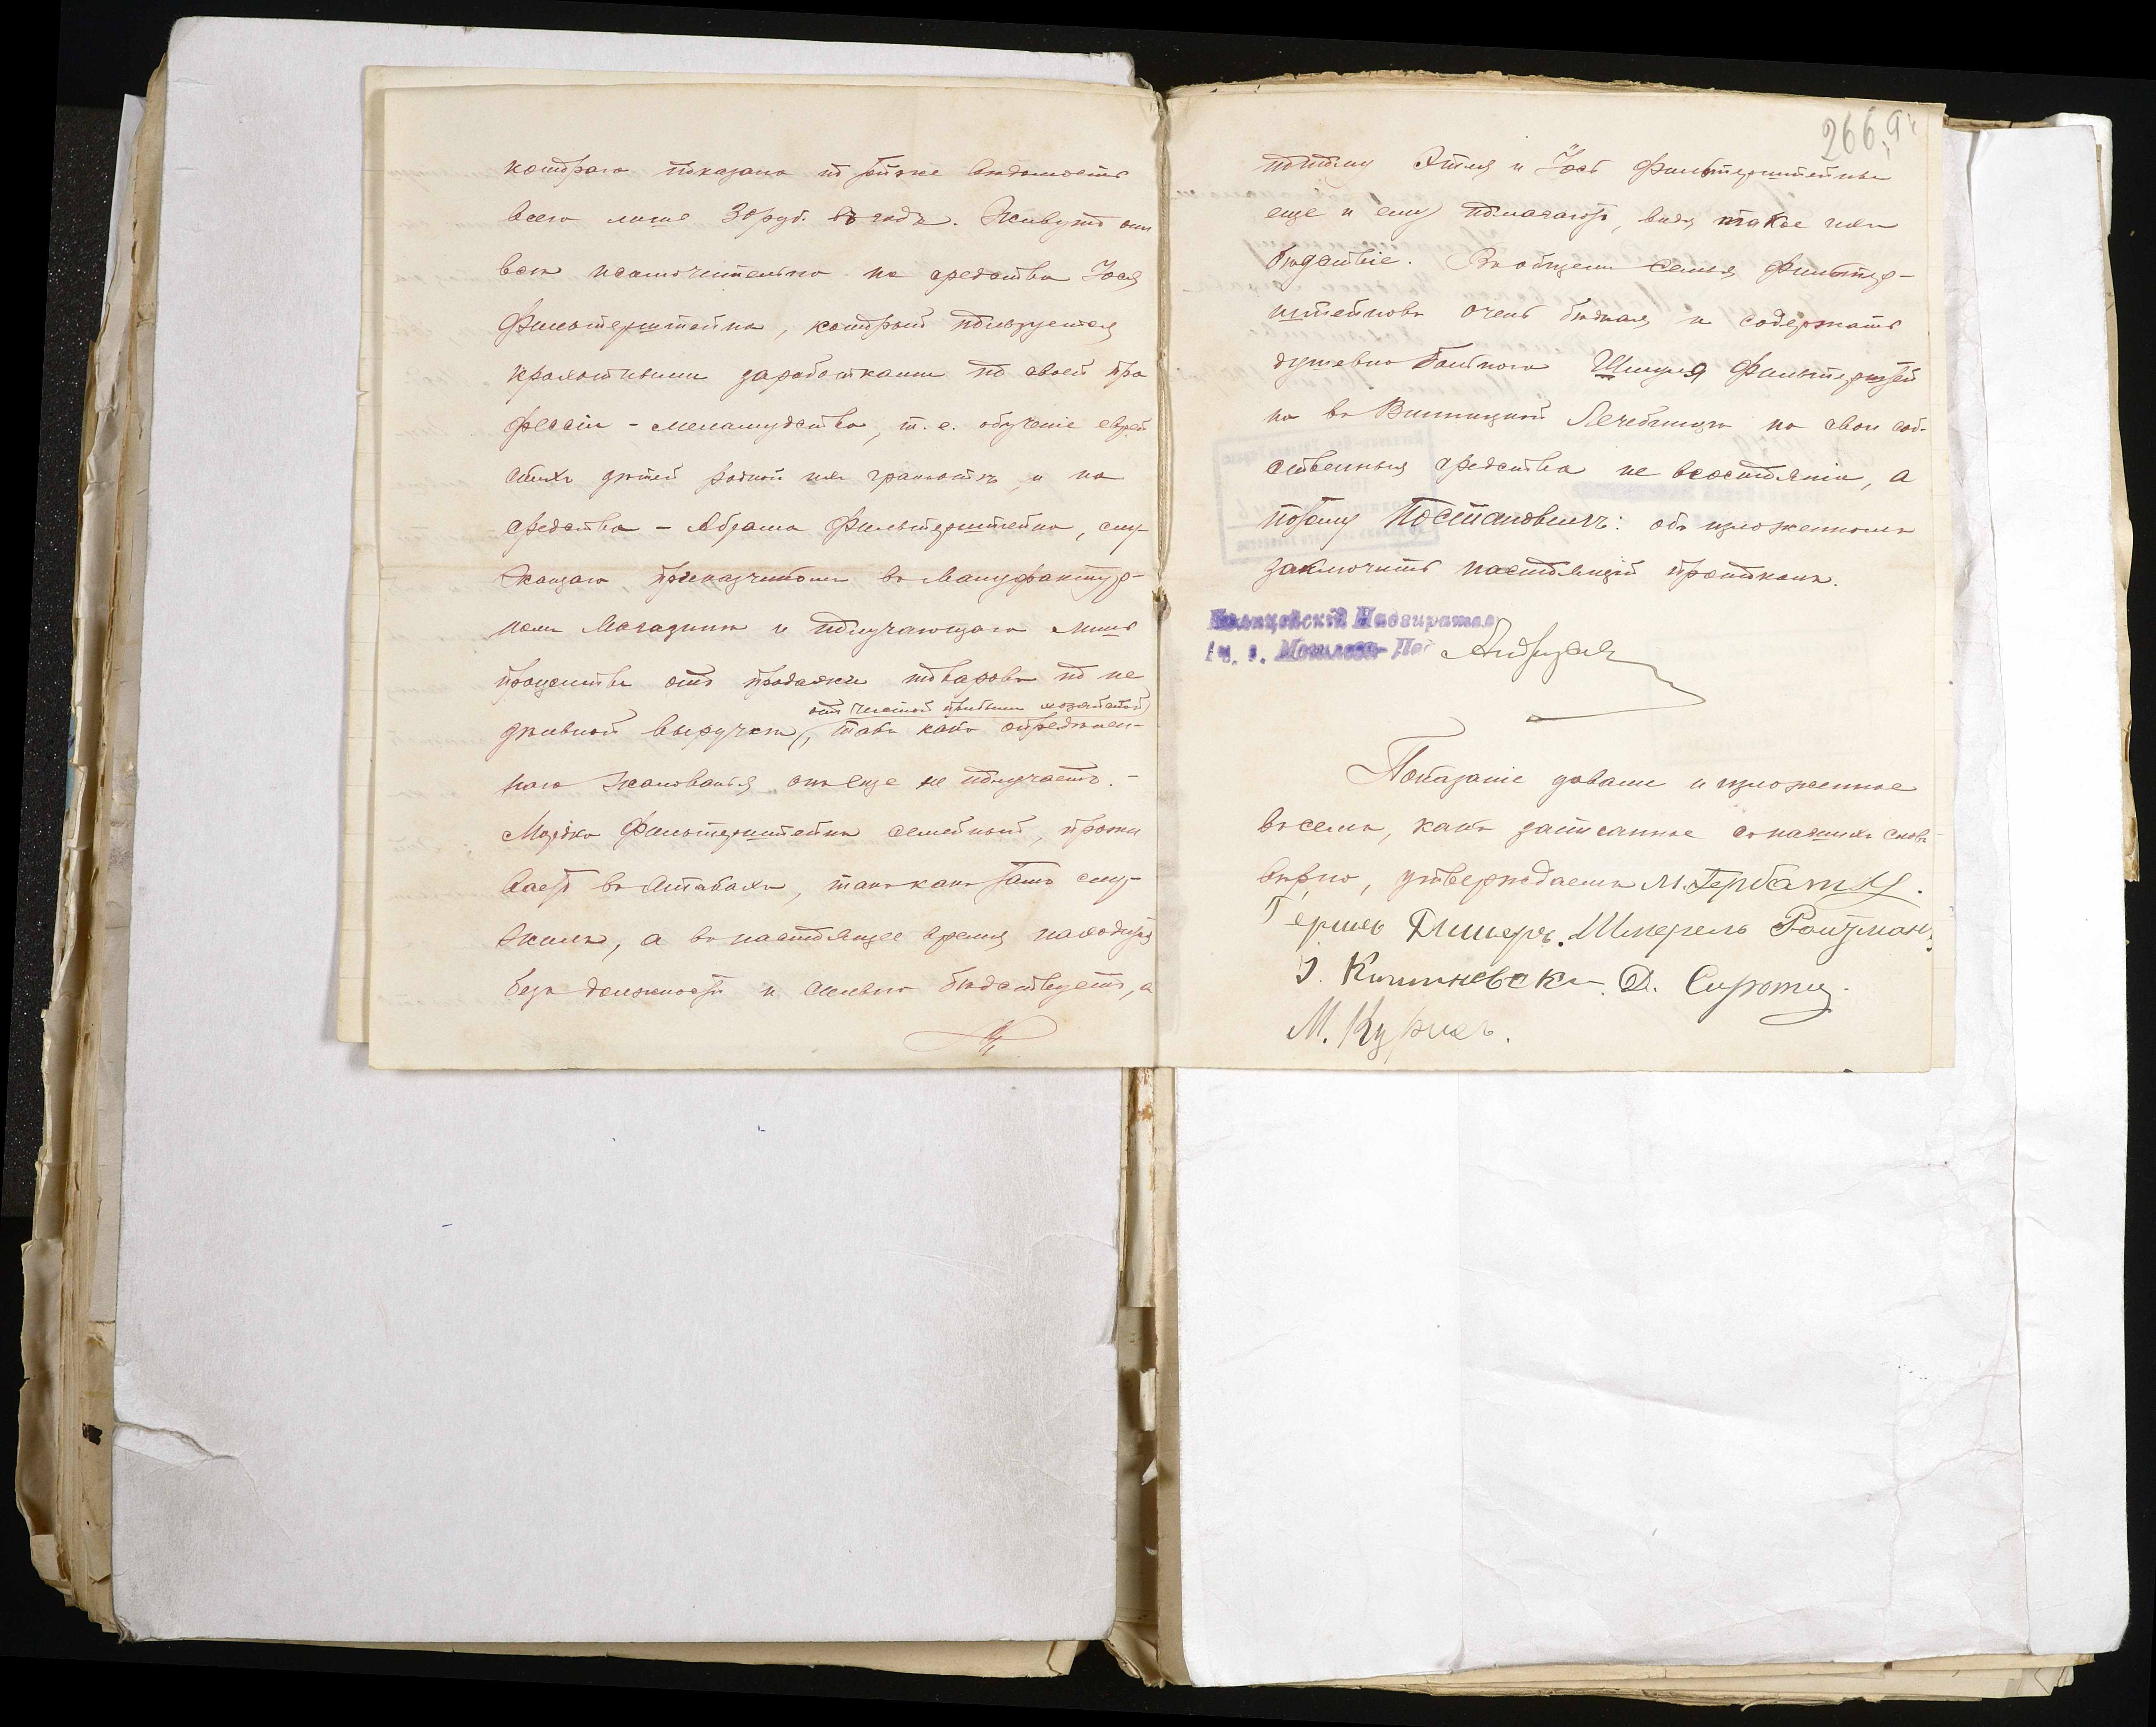 котораго показана по той же вѣдомости
всего лише 30 руб. въ годъ. Живутъ они
всѣ исключительно на средства Іося
Фильтерштейна, который пользуется
крохотными заработками по своей про
фессіи - меламудства, т. е. обученіе еврей
скихъ дѣтей родной имъ грамотѣ, и на
средства - Абрама Фильтерштейна, слу-
жащаго, приказчикомъ въ мануфактур-
номъ магазинѣ и получающаго лишь
проценты отъ продажи товаровъ по
отъ чистой прибыли
дневной выручки, такъ какъ опредѣлен-
наго жалованья онъ еще не получаетъ. -
Мордко Фильтерштейнъ семейный, прожи
ваетъ въ Атакахъ, такъ какъ тамъ слу-
жилъ, а въ настоящее время находится
безъ должности и сильно бѣдствуетъ, а
266
потому Этля и Іось Фильтерштейны
еще и ему помогаютъ, видя такое ихъ
бѣдствіе. Вообщемъ семья Фильтер-
штейновъ очень бѣдная и содержать
душевно больного Шмуля Фильтерштей
на въ Винницкой Лечебницѣ на свои соб-
ственныя средства не въ состояніи, а
потому Постановилъ: объ изложенномъ
заключить настоящій протоколъ.
Полицейскій Надзиратель
1 ч. г. Могилева-Под
Показаніе давали и изложенное
въ семъ, какъ записанное съ нашихъ словъ
вѣрно, утверждаемъ М. Гербатъ
Гершъ Шмерель Ройзманъ
Кишиневски Д. Сирота
М.